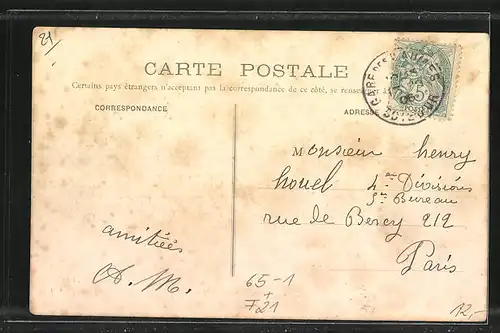 21
CARTE POSTALE
Certains pays étrangers n'acceptant pas la correspondance de ce côté, se renseigner
CORRESPONDANCE
ADRESSE
GARE DES
5
Monsieur henry
houel 4e Division
5e Bureau
rue de Bercy 212
Paris
amitiées
A. M.
65-1
+
F21
12,-